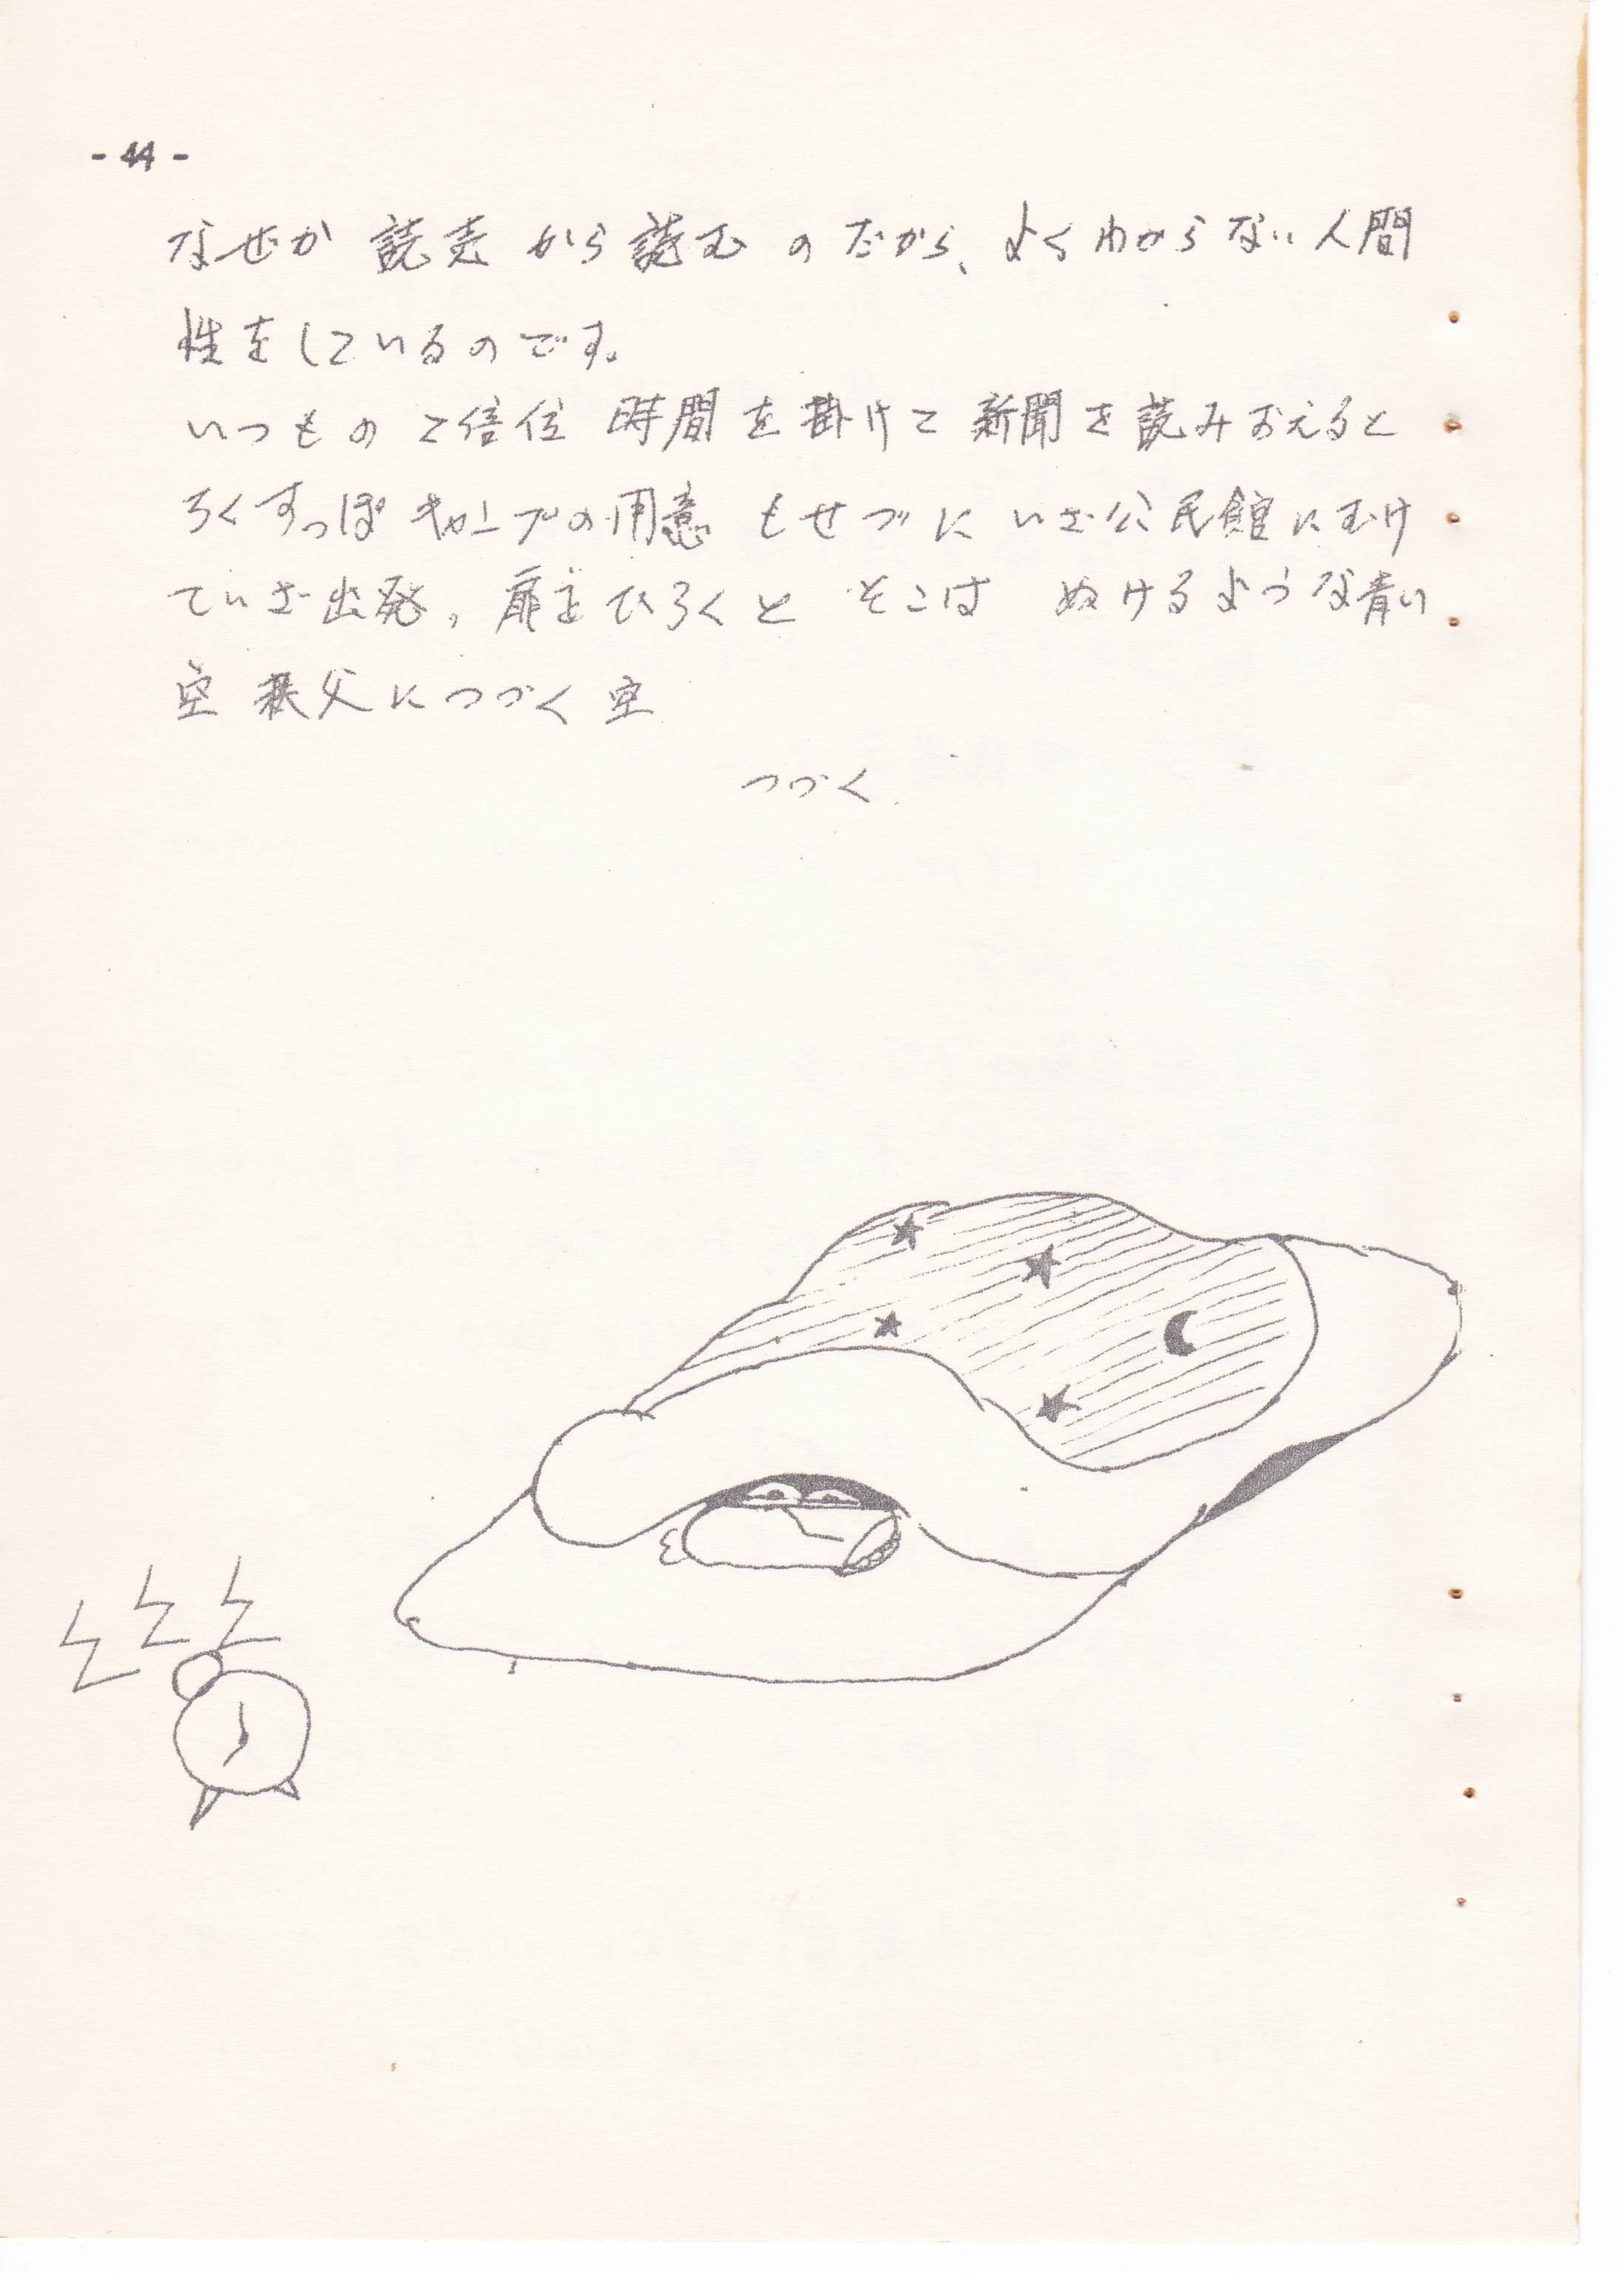 - 44 -
なぜか 読売 から 読む のだから、よくわからない人間
性をしているのです。
いつもの 2倍位 時間を掛けて 新聞を読みおえると
ろくすっぽ キャンプの用意 もせづに いざ公民館にむけ
ていざ出発。扉をひろくと そこは ぬけるような青い
空 秩父につづく空
つづく.